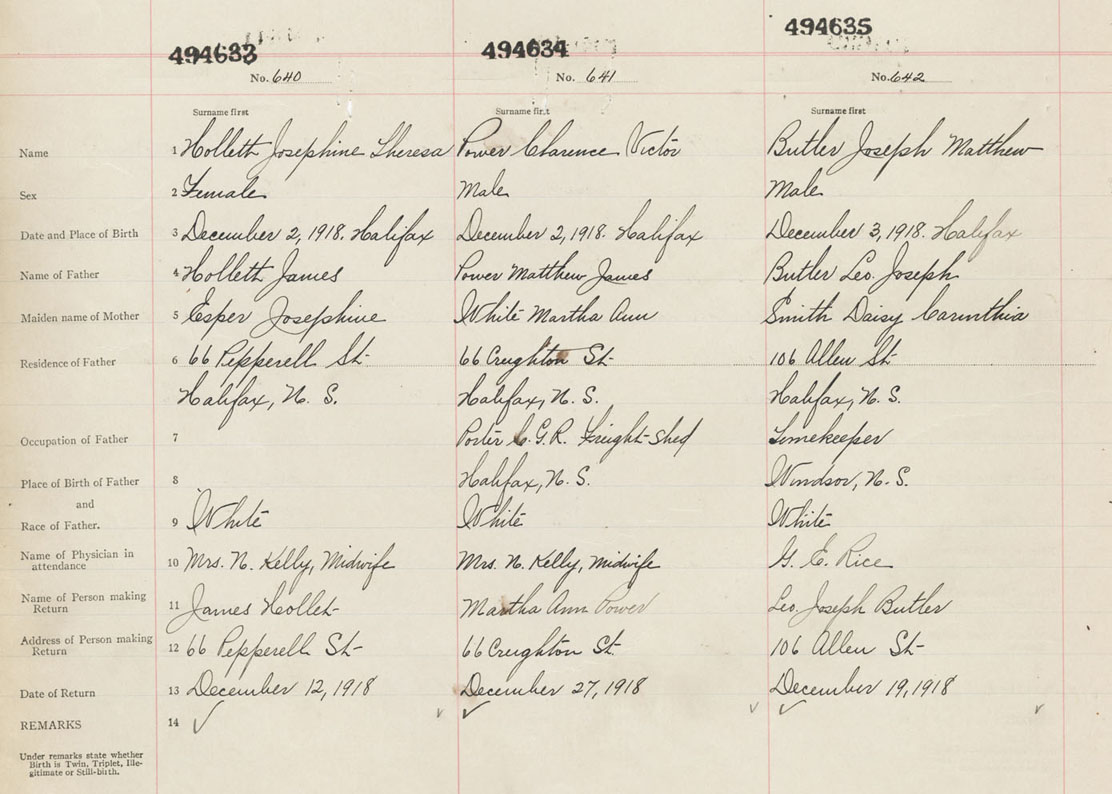 494633 494634 494635
No. 640 No. 641 No. 642
Surname first Surname first Surname first
Name 1 Hollett Josephine Theresa Power Clarence Victor Butler Joseph Matthew
Sex 2 Female Male Male
Date and Place of Birth 3 December 2, 1918. Halifax December 2, 1918. Halifax December 3, 1918. Halifax
Name of Father 4 Hollett James Power Matthew James Butler Leo. Joseph
Maiden name of Mother 5 Esper Josephine White Martha Ann Smith Daisy Carinthia
Residence of Father 6 66 Pepperell St. 66 Creighton St. 106 Allen St.
Halifax, N. S. Halifax, N. S. Halifax, N. S.
Occupation of Father 7 Porter C.G.R. Freight-shed Timekeeper
Place of Birth of Father 8 Halifax, N. S. Windsor, N. S.
and
Race of Father. 9 White White White
Name of Physician in
attendance 10 Mrs. N. Kelly, Midwife Mrs. N. Kelly, Midwife G. E. Rice
Name of Person making
Return 11 James Hollet Martha Ann Power Leo. Joseph Butler
Address of Person making
Return 12 66 Pepperell St. 66 Creighton St. 106 Allen St.
Date of Return 13 December 12, 1918 December 27, 1918 December 19, 1918
REMARKS 14
Under remarks state whether
Birth is Twin, Triplet, Ille-
gitimate or Still-birth.